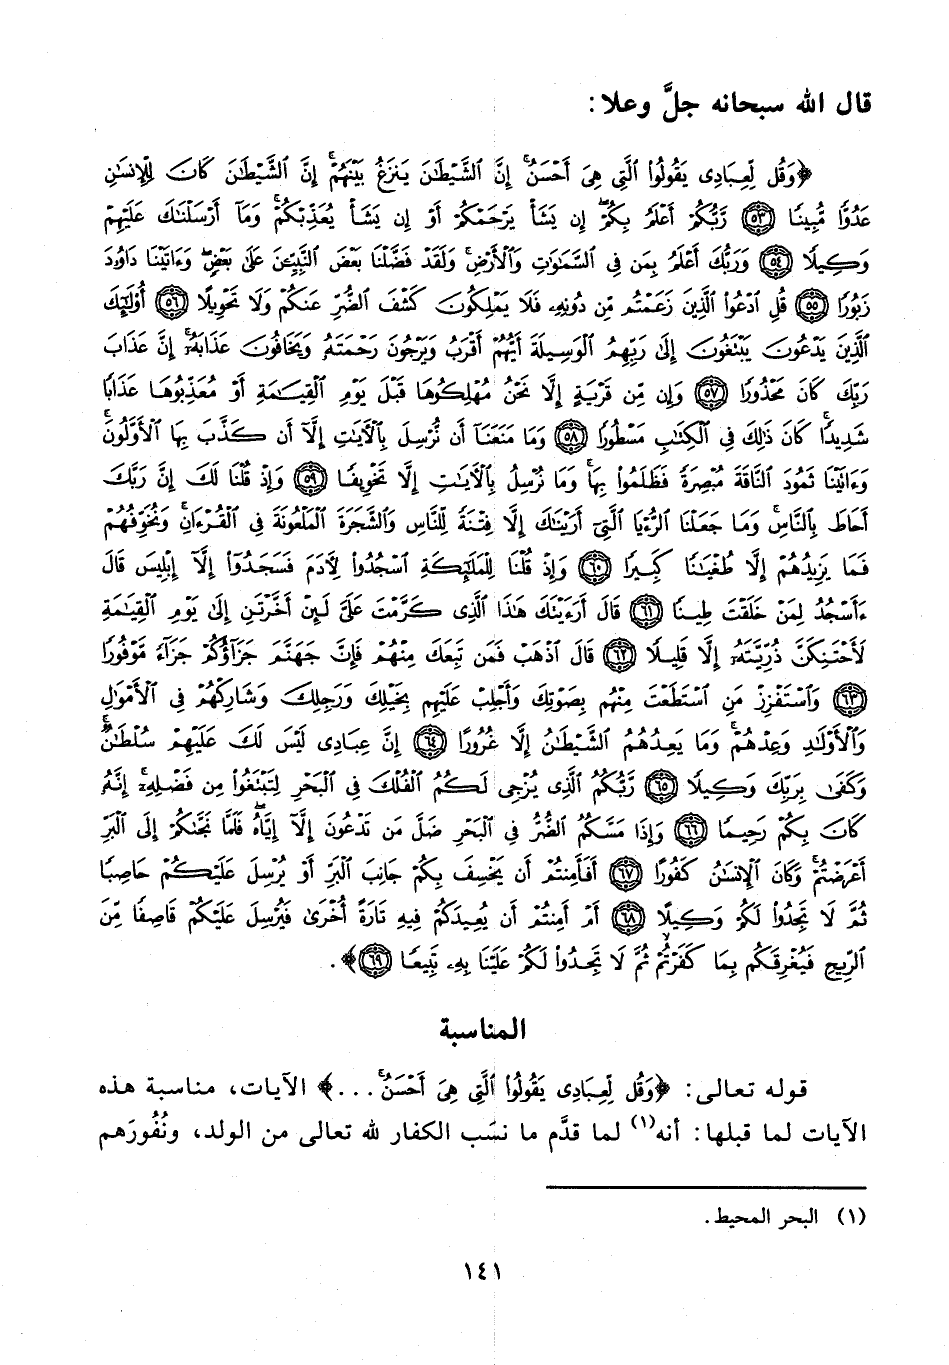 قال الله سبحانه جلَّ وعلا:
﴿وَقُل لِّعِبَادِى يَقُولُوا۟ ٱلَّتِى هِىَ أَحْسَنُ ۚ إِنَّ ٱلشَّيْطَٰنَ يَنزَغُ بَيْنَهُمْ ۚ إِنَّ ٱلشَّيْطَٰنَ كَانَ لِلْإِنسَٰنِ
عَدُوًّا مُّبِينًا ٥٣ رَّبُّكُمْ أَعْلَمُ بِكُمْ ۖ إِن يَشَأْ يَرْحَمْكُمْ أَوْ إِن يَشَأْ يُعَذِّبْكُمْ ۚ وَمَآ أَرْسَلْنَٰكَ عَلَيْهِمْ
وَكِيلًا ٥٤ وَرَبُّكَ أَعْلَمُ بِمَن فِى ٱلسَّمَٰوَٰتِ وَٱلْأَرْضِ ۗ وَلَقَدْ فَضَّلْنَا بَعْضَ ٱلنَّبِيِّۦنَ عَلَىٰ بَعْضٍ ۖ وَءَاتَيْنَا دَاوُۥدَ
زَبُورًا ٥٥ قُلِ ٱدْعُوا۟ ٱلَّذِينَ زَعَمْتُم مِّن دُونِهِۦ فَلَا يَمْلِكُونَ كَشْفَ ٱلضُّرِّ عَنكُمْ وَلَا تَحْوِيلًا ٥٦ أُو۟لَٰٓئِكَ
ٱلَّذِينَ يَدْعُونَ يَبْتَغُونَ إِلَىٰ رَبِّهِمُ ٱلْوَسِيلَةَ أَيُّهُمْ أَقْرَبُ وَيَرْجُونَ رَحْمَتَهُۥ وَيَخَافُونَ عَذَابَهُۥٓ ۚ إِنَّ عَذَابَ
رَبِّكَ كَانَ مَحْذُورًا ٥٧ وَإِن مِّن قَرْيَةٍ إِلَّا نَحْنُ مُهْلِكُوهَا قَبْلَ يَوْمِ ٱلْقِيَٰمَةِ أَوْ مُعَذِّبُوهَا عَذَابًا
شَدِيدًا ۚ كَانَ ذَٰلِكَ فِى ٱلْكِتَٰبِ مَسْطُورًا ٥٨ وَمَا مَنَعَنَآ أَن نُّرْسِلَ بِٱلْـَٔايَٰتِ إِلَّآ أَن كَذَّبَ بِهَا ٱلْأَوَّلُونَ ۚ
وَءَاتَيْنَا ثَمُودَ ٱلنَّاقَةَ مُبْصِرَةً فَظَلَمُوا۟ بِهَا ۚ وَمَا نُرْسِلُ بِٱلْـَٔايَٰتِ إِلَّا تَخْوِيفًا ٥٩ وَإِذْ قُلْنَا لَكَ إِنَّ رَبَّكَ
أَحَاطَ بِٱلنَّاسِ ۚ وَمَا جَعَلْنَا ٱلرُّءْيَا ٱلَّتِىٓ أَرَيْنَٰكَ إِلَّا فِتْنَةً لِّلنَّاسِ وَٱلشَّجَرَةَ ٱلْمَلْعُونَةَ فِى ٱلْقُرْءَانِ ۚ وَنُخَوِّفُهُمْ
فَمَا يَزِيدُهُمْ إِلَّا طُغْيَٰنًا كَبِيرًا ٦٠ وَإِذْ قُلْنَا لِلْمَلَٰٓئِكَةِ ٱسْجُدُوا۟ لِـَٔادَمَ فَسَجَدُوٓا۟ إِلَّآ إِبْلِيسَ قَالَ
ءَأَسْجُدُ لِمَنْ خَلَقْتَ طِينًا ٦١ قَالَ أَرَءَيْتَكَ هَٰذَا ٱلَّذِى كَرَّمْتَ عَلَىَّ لَئِنْ أَخَّرْتَنِ إِلَىٰ يَوْمِ ٱلْقِيَٰمَةِ
لَأَحْتَنِكَنَّ ذُرِّيَّتَهُۥٓ إِلَّا قَلِيلًا ٦٢ قَالَ ٱذْهَبْ فَمَن تَبِعَكَ مِنْهُمْ فَإِنَّ جَهَنَّمَ جَزَآؤُكُمْ جَزَآءً مَّوْفُورًا
٦٣ وَٱسْتَفْزِزْ مَنِ ٱسْتَطَعْتَ مِنْهُم بِصَوْتِكَ وَأَجْلِبْ عَلَيْهِم بِخَيْلِكَ وَرَجِلِكَ وَشَارِكْهُمْ فِى ٱلْأَمْوَٰلِ
وَٱلْأَوْلَٰدِ وَعِدْهُمْ ۚ وَمَا يَعِدُهُمُ ٱلشَّيْطَٰنُ إِلَّا غُرُورًا ٦٤ إِنَّ عِبَادِى لَيْسَ لَكَ عَلَيْهِمْ سُلْطَٰنٌ ۚ
وَكَفَىٰ بِرَبِّكَ وَكِيلًا ٦٥ رَّبُّكُمُ ٱلَّذِى يُزْجِى لَكُمُ ٱلْفُلْكَ فِى ٱلْبَحْرِ لِتَبْتَغُوا۟ مِن فَضْلِهِۦٓ ۚ إِنَّهُۥ
كَانَ بِكُمْ رَحِيمًا ٦٦ وَإِذَا مَسَّكُمُ ٱلضُّرُّ فِى ٱلْبَحْرِ ضَلَّ مَن تَدْعُونَ إِلَّآ إِيَّاهُ ۖ فَلَمَّا نَجَّىٰكُمْ إِلَى ٱلْبَرِّ
أَعْرَضْتُمْ ۚ وَكَانَ ٱلْإِنسَٰنُ كَفُورًا ٦٧ أَفَأَمِنتُمْ أَن يَخْسِفَ بِكُمْ جَانِبَ ٱلْبَرِّ أَوْ يُرْسِلَ عَلَيْكُمْ حَاصِبًا
ثُمَّ لَا تَجِدُوا۟ لَكُمْ وَكِيلًا ٦٨ أَمْ أَمِنتُمْ أَن يُعِيدَكُمْ فِيهِ تَارَةً أُخْرَىٰ فَيُرْسِلَ عَلَيْكُمْ قَاصِفًا مِّنَ
ٱلرِّيحِ فَيُغْرِقَكُم بِمَا كَفَرْتُمْ ۙ ثُمَّ لَا تَجِدُوا۟ لَكُمْ عَلَيْنَا بِهِۦ تَبِيعًا ٦٩﴾.
المناسبة
قوله تعالى: ﴿وَقُل لِّعِبَادِى يَقُولُوا۟ ٱلَّتِى هِىَ أَحْسَنُ ۚ...﴾ الآيات، مناسبة هذه
الآيات لما قبلها: أنه(١) لما قدَّم ما نسَب الكفار لله تعالى من الولد، ونُفُورَهم
(١) البحر المحيط.
١٤١